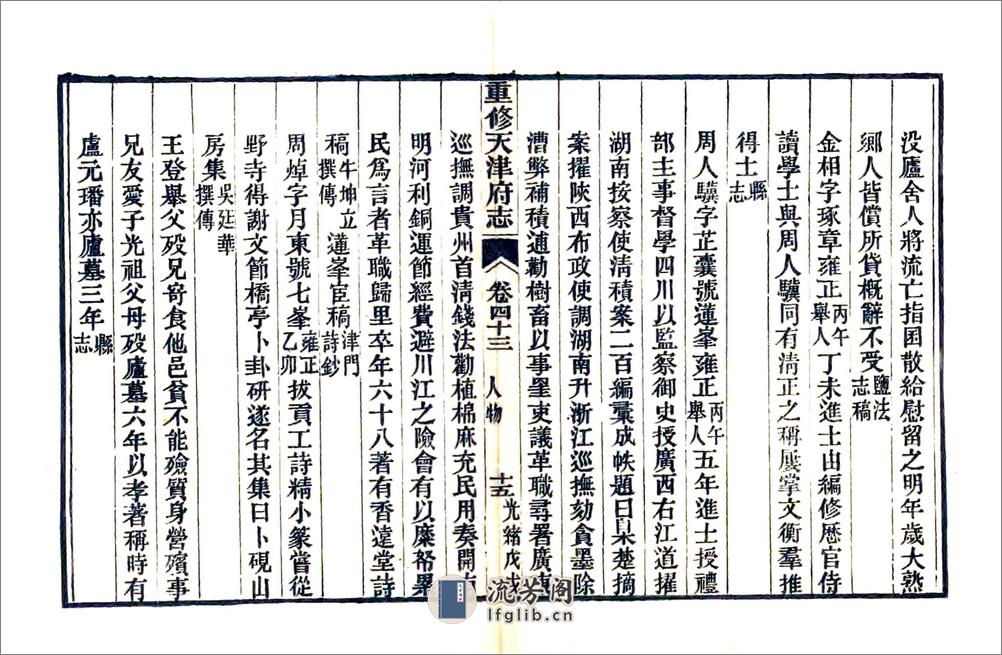 没廬舍人將流亡指囷散給慰留之明年歲大熟
鄉人皆償所貸概辭不受鹽法志稿
金相字琢章雍正丙午舉人丁未進士由編修歷官侍
讀學士與周人驥同有淸正之稱屢掌文衡羣推
得士縣志
周人驥字芷囊號蓮峯雍正丙午舉人五年進士授禮
部主事督學四川以監察御史授廣西右江道擢
湖南按察使淸積案二百編彙成帙題曰臬楚摘
案擢陝西布政使調湖南升浙江巡撫劾貪墨除
漕弊補積逋勸樹畜以事罣吏議革職尋署廣
巡撫調貴州首淸錢法勸植棉麻充民用奏開
明河利銅運節經費避川江之險會有以糜帑累
民爲言者革職歸里卒年六十八著有香遠堂詩
稿牛坤立撰傳蓮峯宦稿津門詩鈔
周焯字月東號七峯雍正乙卯拔貢工詩精小篆嘗從
野寺得謝文節橋亭卜卦硏遂名其集曰卜硯山
房集吳廷華撰傳
王登舉父歿兄寄食他邑貧不能殮質身營殯事
兄友愛子光祖父母歿廬墓六年以孝著稱時有
盧元璠亦廬墓三年縣志
重修天津府志 卷四十三 人物 十五 光緖戊戌
流芳阁
lfglib.cn